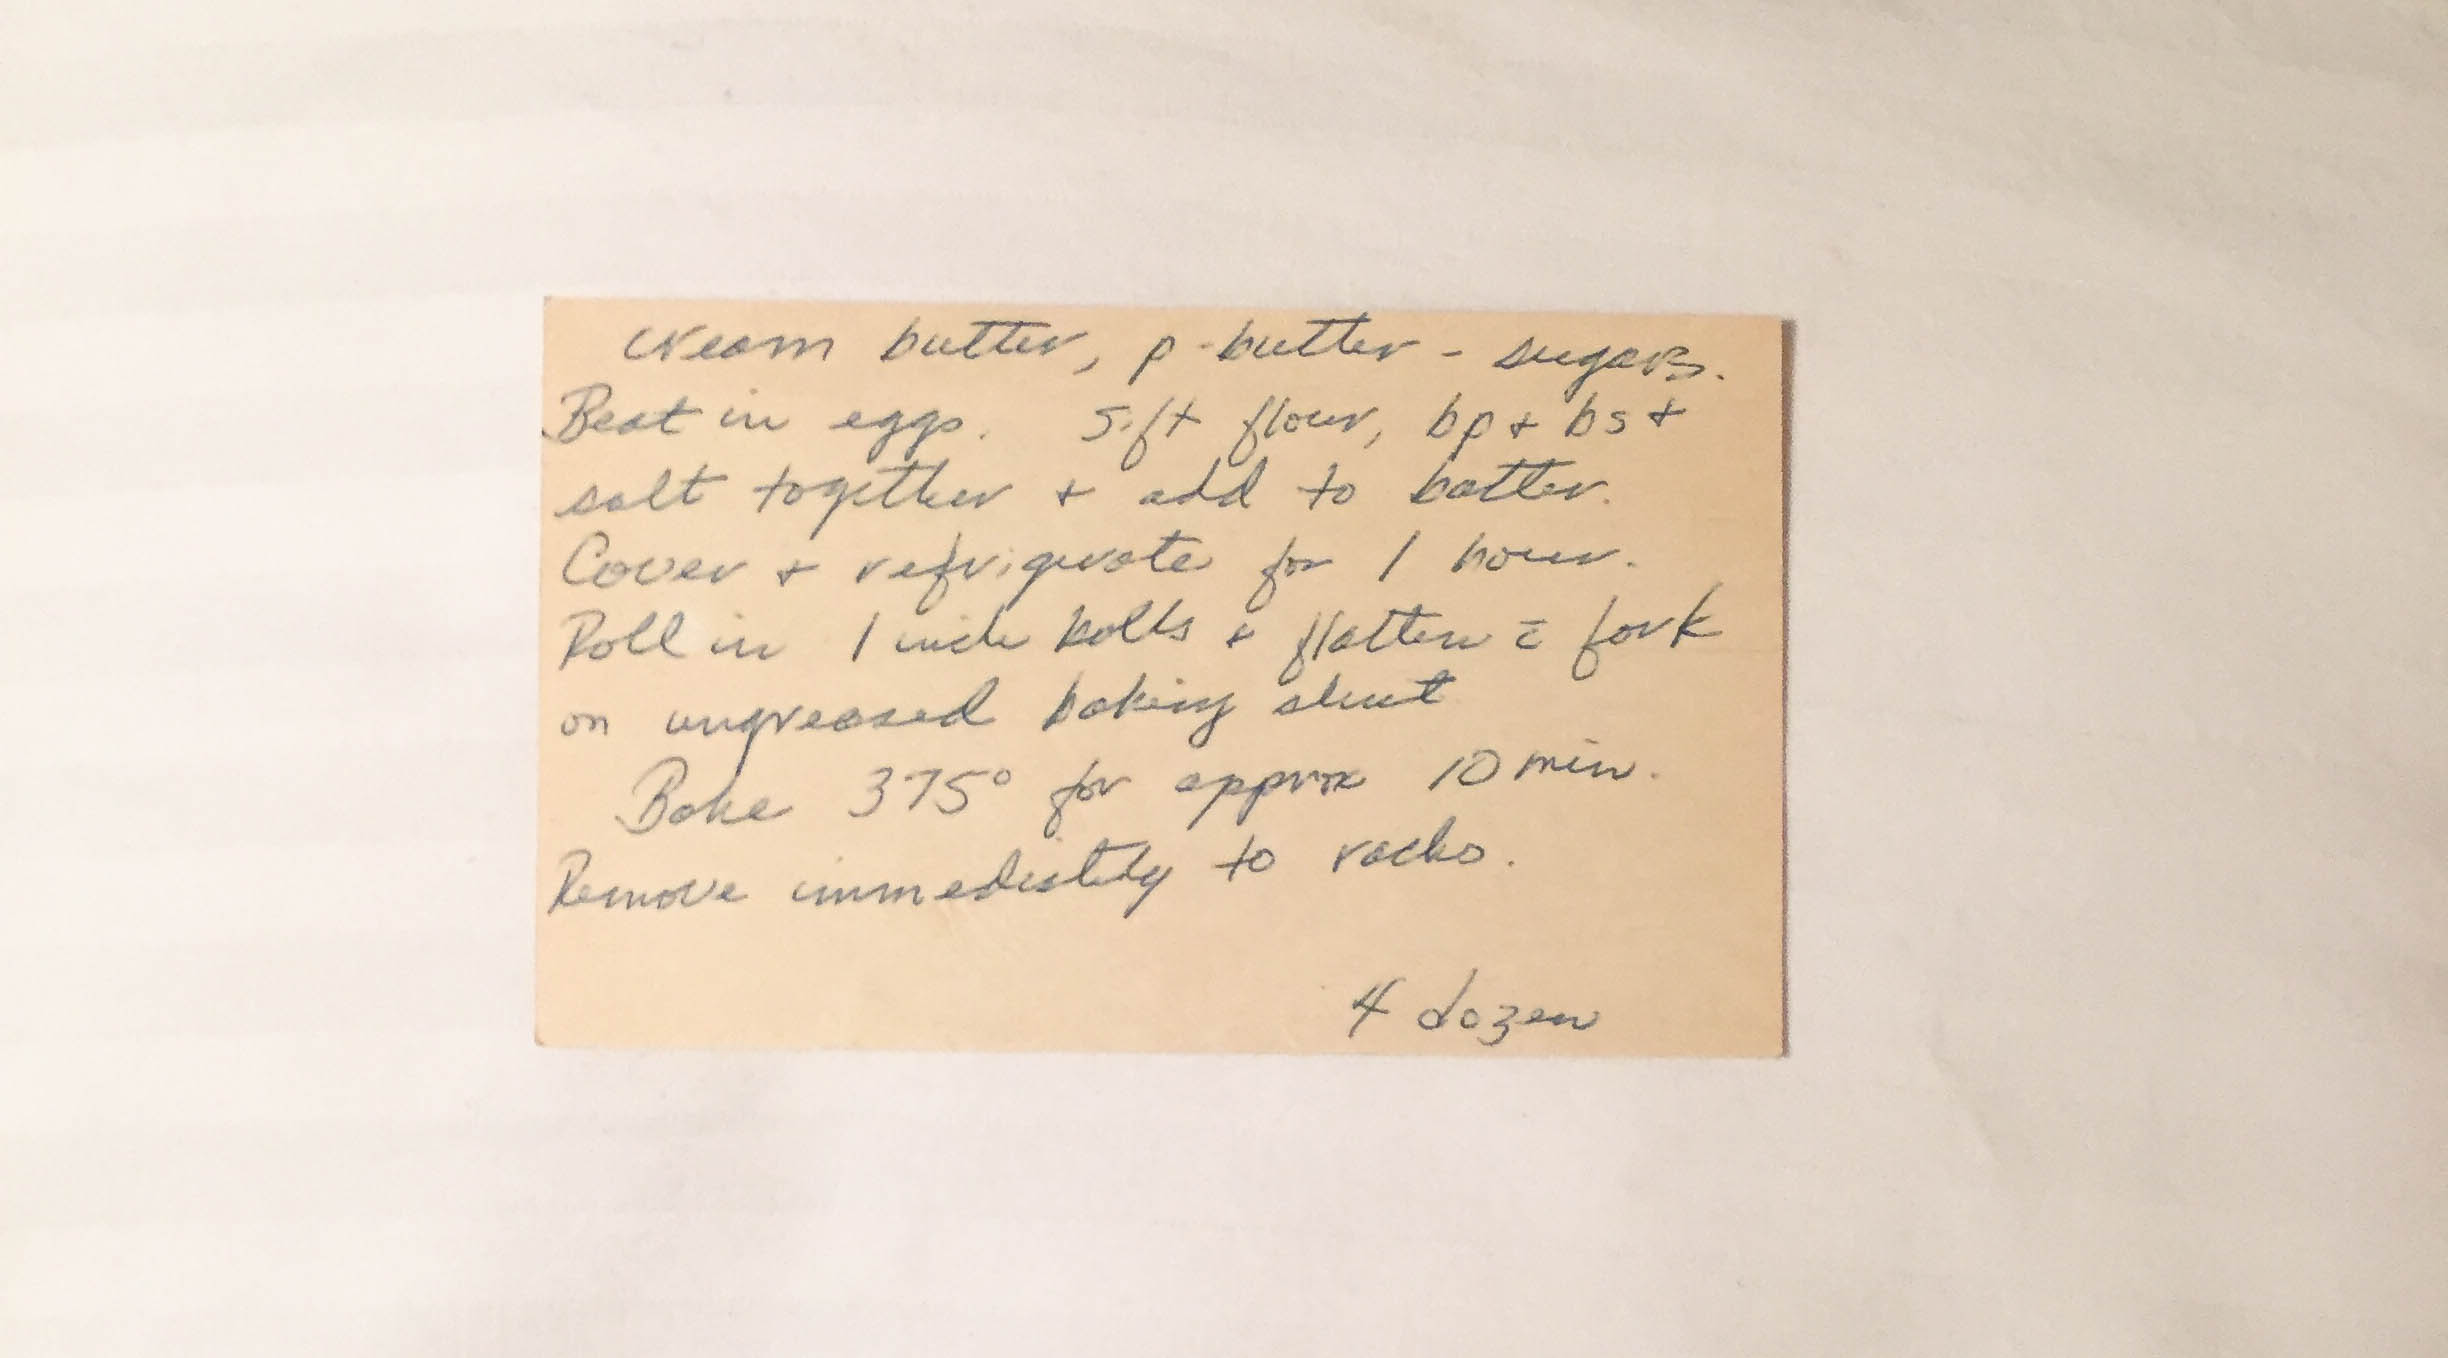 cream butter, p-butter - sugars.
Beat in eggs. Sift flour, bp + bs +
salt together + add to batter.
Cover + refrigerate for 1 hour.
Roll in 1 inch balls + flatten c̄ fork
on ungreased baking sheet
Bake 375° for approx 10 min.
Remove immediately to racks.
4 dozen